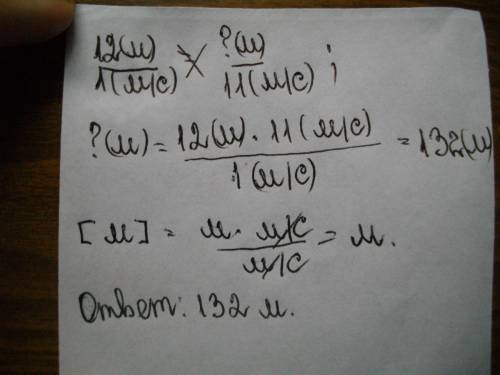 12(м)/1(м/с) × ?(м)/11(м/с) ;
?(м) = 12(м) · 11(м/с)/1(м/с) = 132(м)
[м] = м · м/с/м/с = м.
Ответ: 132 м.